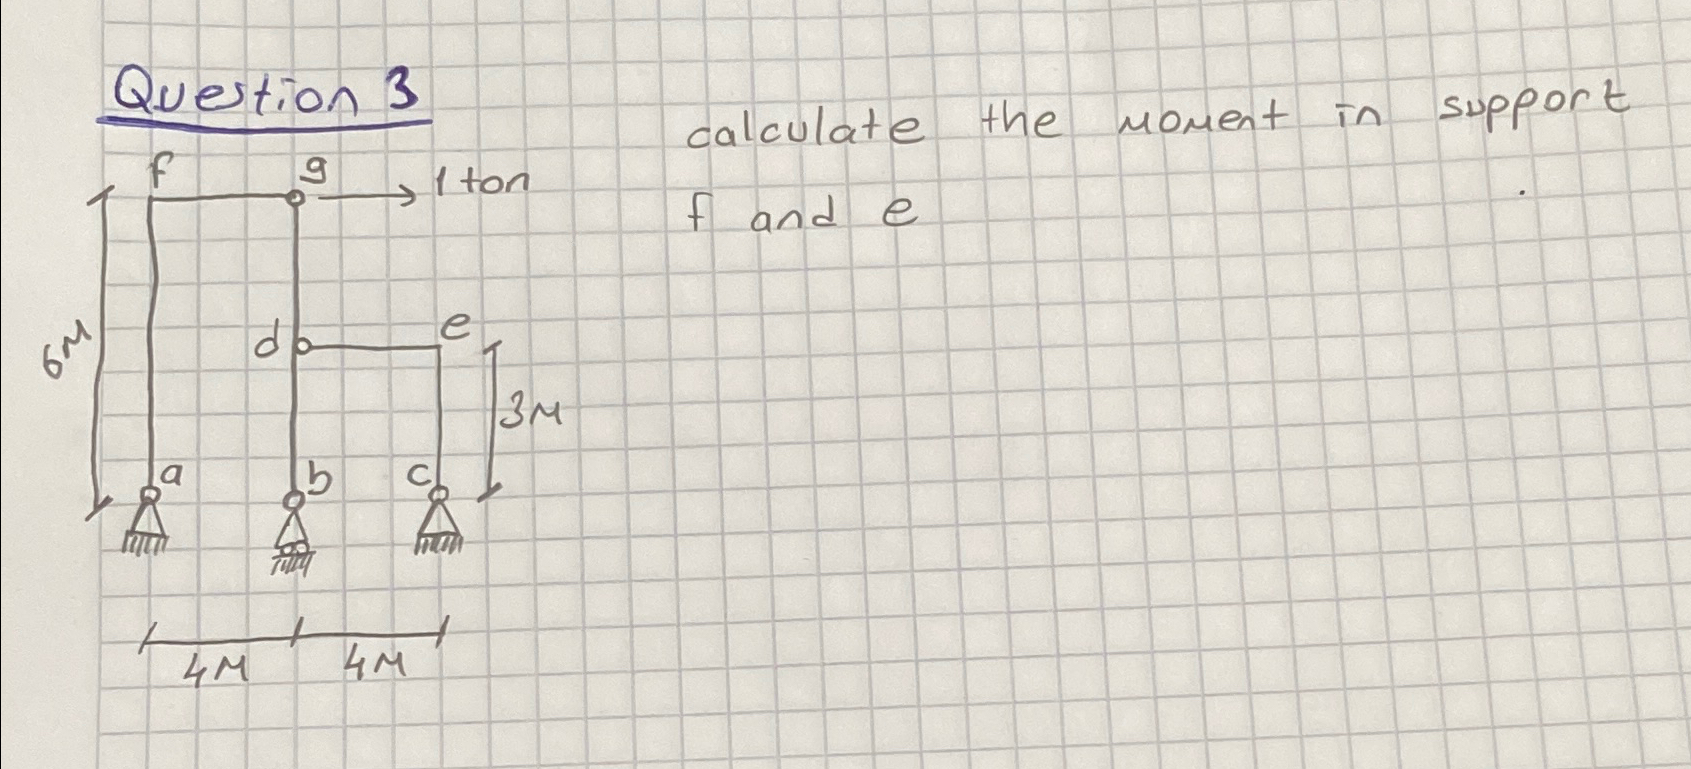 Question 3
calculate the moment in support
f and e
f
g
1 ton
6M
d
e
3M
a
b
c
4M
4M